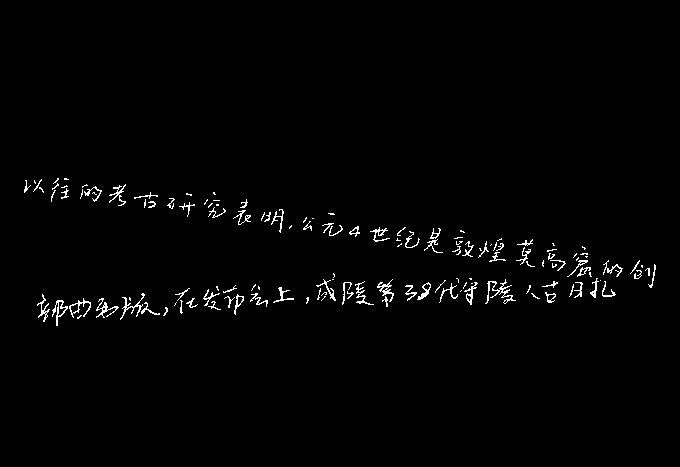 以往的考古研究表明,公元4世纪是敦煌莫高窟的创
部曲再版,在发布会上,成陵第38代守陵人古日扎